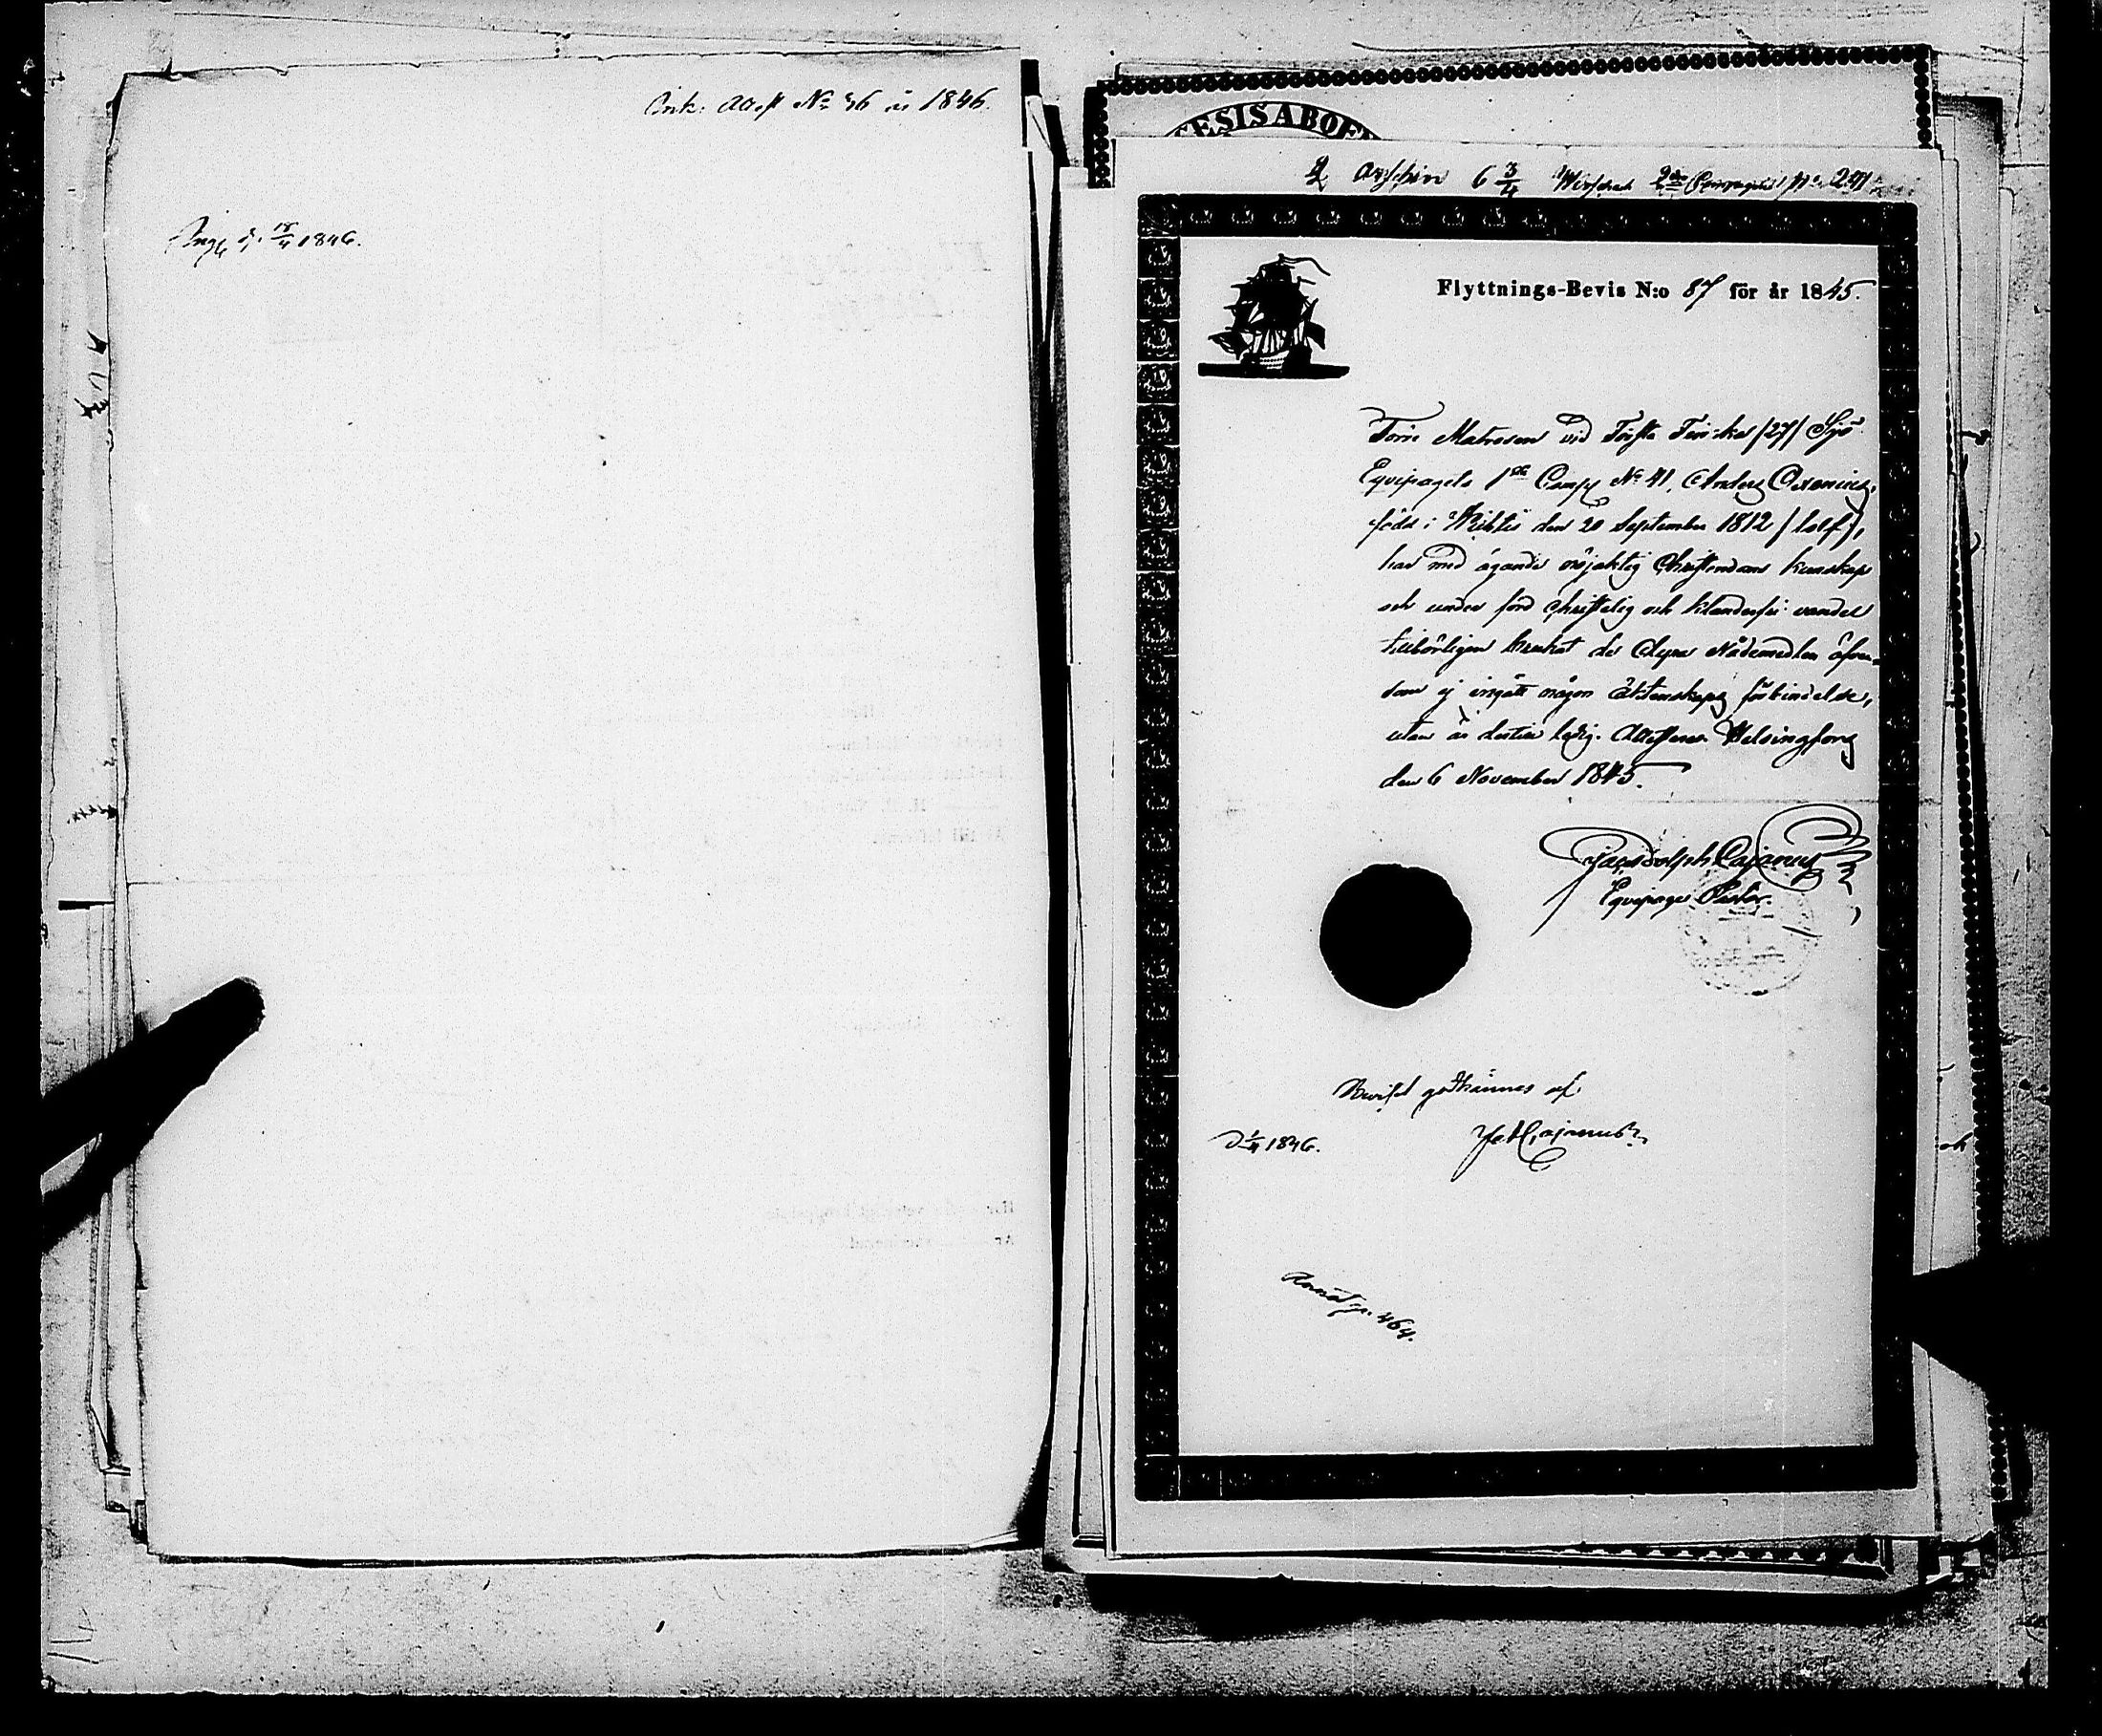 Ink: Attest No 36 år 1846.
Ingg d. 18/4 1846.
ESIS ABOEN
2 Arschin 6 3/4 Werschock 2dra Compagniet No 241
Flyttnings-Bevis N:o 87 för år 1845.
Förre Matrosen vid Första Finska /27/ Sjö
Equipagets 1sta Comp No 41, Anders
född i Wichtis den 20 September 1812 / tolf /,
har med ägande nöjaktig Christendoms kunskap
och under förd christelig och klanderfri vandel
tillbörligen brukat de dyra Nådemedlen äfven-
som ej ingått någon äktenskaps förbindelse,
utan är dertill ledig. Attesteras Helsingfors
den 6 November 1845.
Cajanus
Equipage Pastor.
Beviset godkännes af
d 1/4 1846. Cajanus
Annot p. 464.